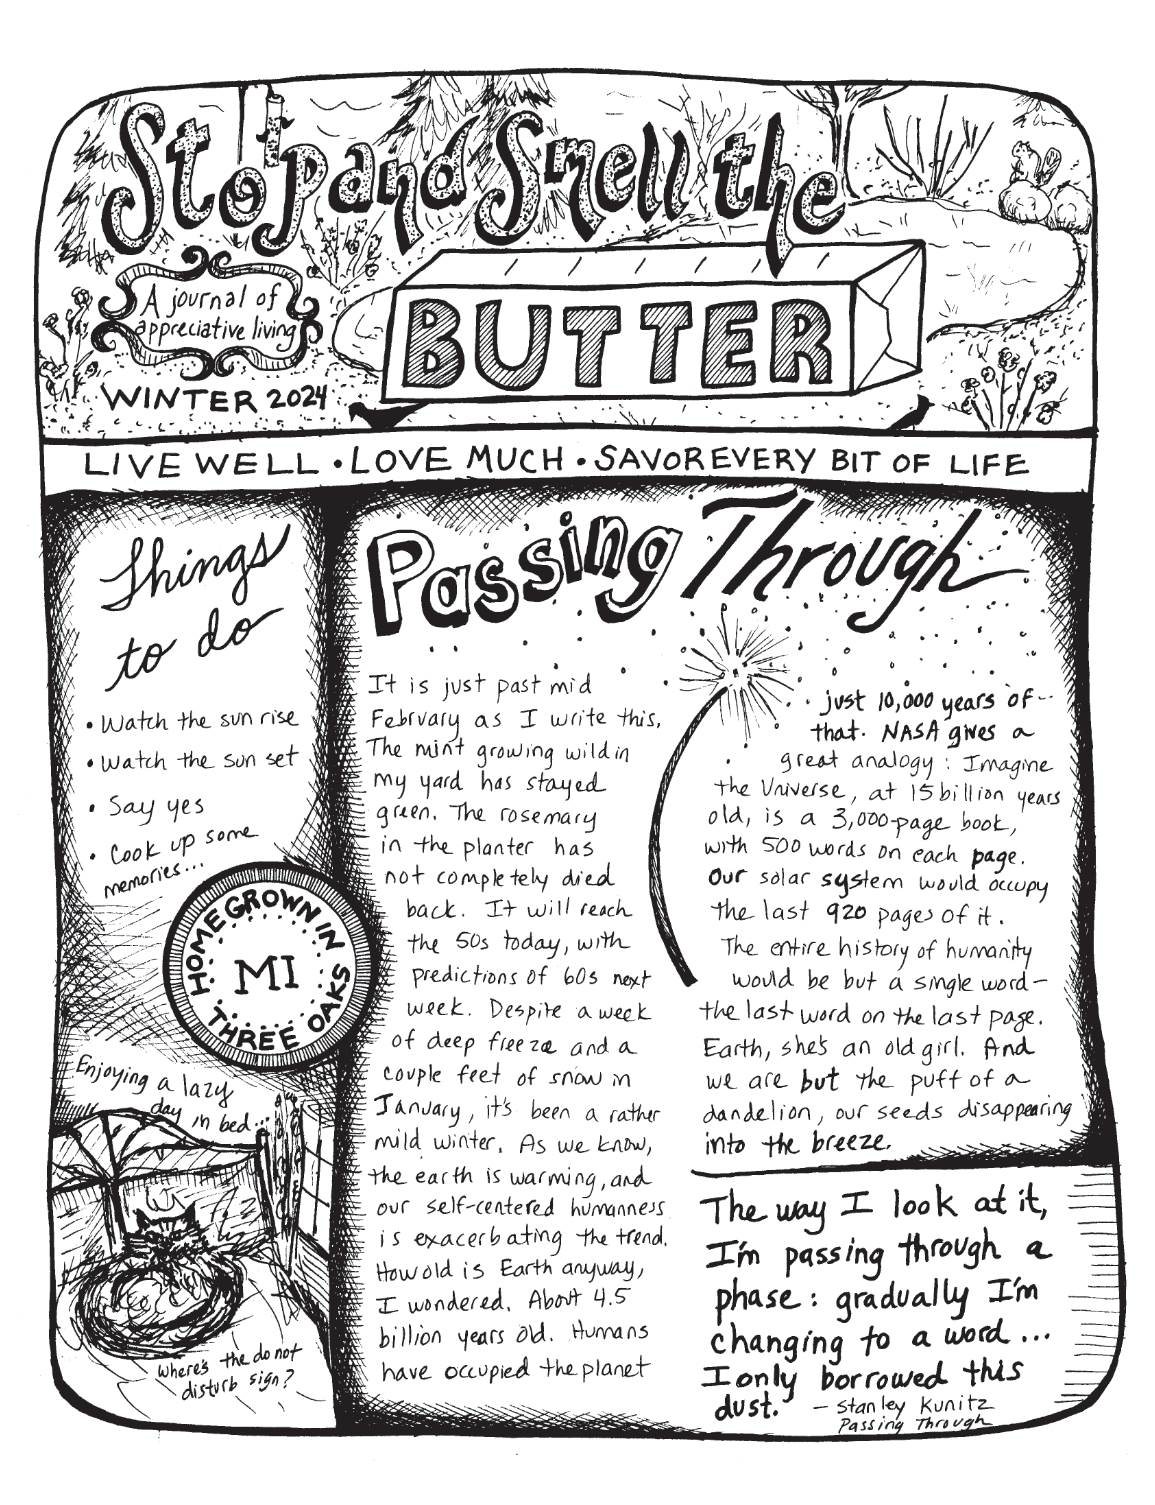 Stop and Smell the
BUTTER
A journal of
appreciative living
WINTER 2024
LIVE WELL • LOVE MUCH • SAVOR EVERY BIT OF LIFE
Things
to do
• Watch the sun rise
• Watch the sun set
• Say yes
• Cook up some
memories...
HOMEGROWN IN
MI
THREE OAKS
Enjoying a lazy
day in bed...
Where's the do not
disturb sign?
Passing Through
It is just past mid
February as I write this.
The mint growing wild in
my yard has stayed
green. The rosemary
in the planter has
not completely died
back. It will reach
the 50s today, with
predictions of 60s next
week. Despite a week
of deep freeze and a
couple feet of snow in
January, it's been a rather
mild winter. As we know,
the earth is warming, and
our self-centered humanness
is exacerbating the trend.
How old is Earth anyway,
I wondered. About 4.5
billion years old. Humans
have occupied the planet
just 10,000 years of
that. NASA gives a
great analogy: Imagine
the Universe, at 15 billion years
old, is a 3,000-page book,
with 500 words on each page.
Our solar system would occupy
the last 920 pages of it.
The entire history of humanity
would be but a single word—
the last word on the last page.
Earth, she's an old girl. And
we are but the puff of a
dandelion, our seeds disappearing
into the breeze.
The way I look at it,
I'm passing through a
phase: gradually I'm
changing to a word...
I only borrowed this
dust. – Stanley Kunitz
Passing Through